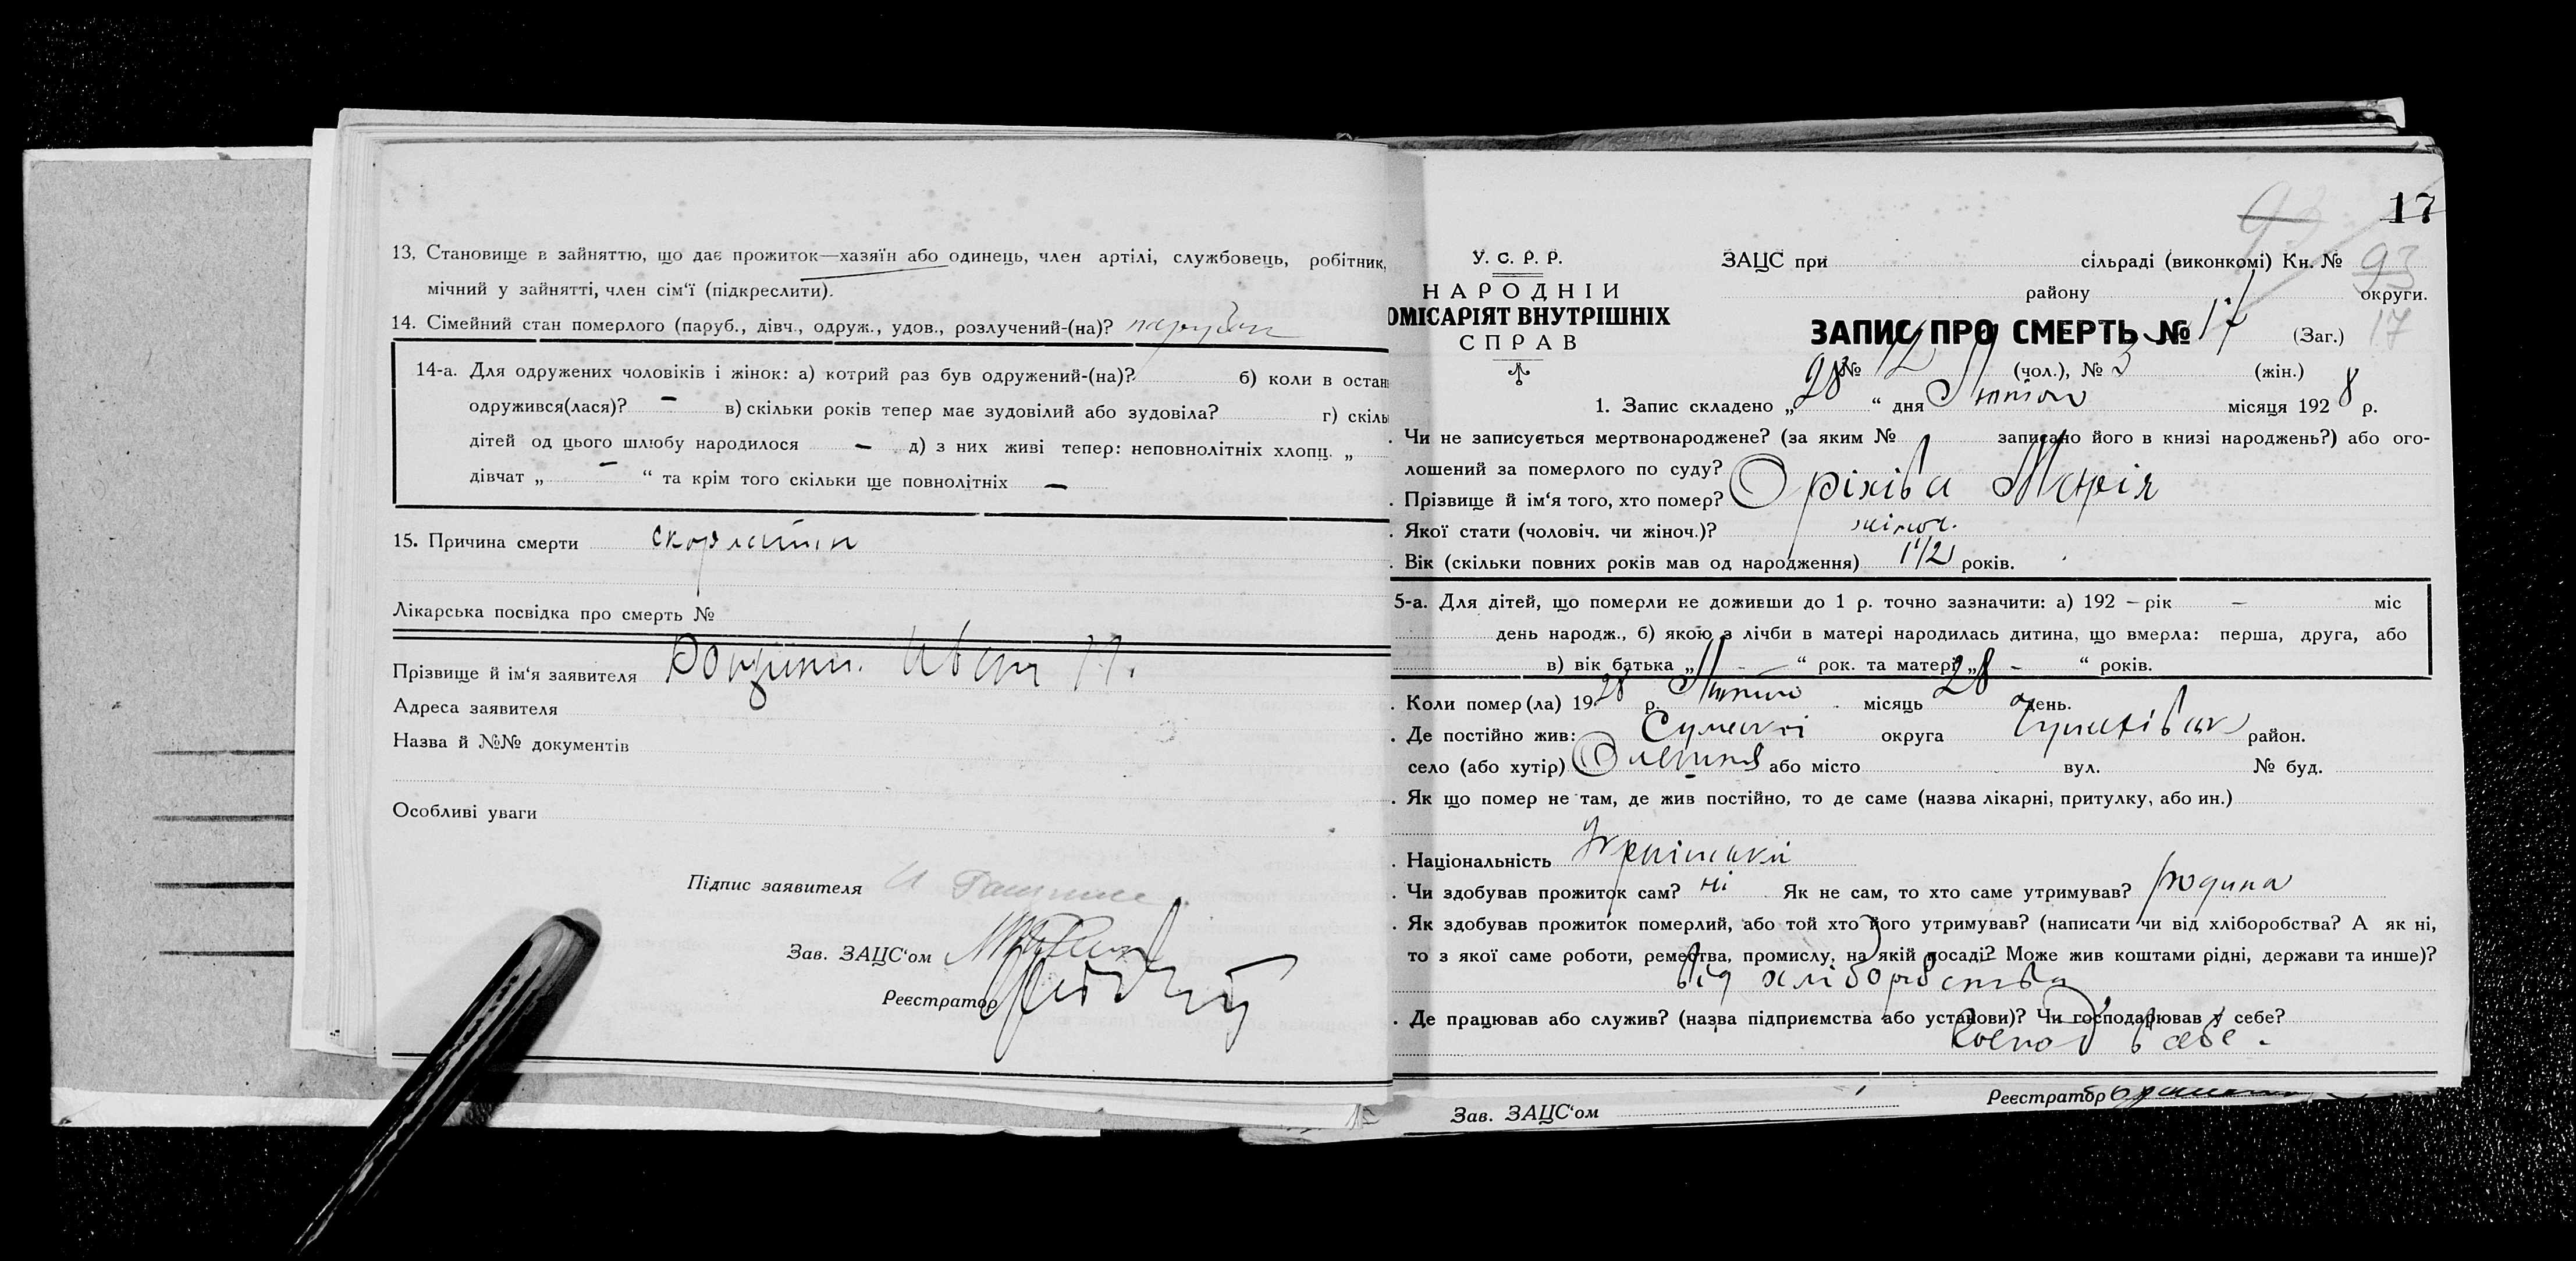 13, Становище в зайняттю, що дає прожиток—хазяїн або одинець, член артілі, службовець, робітник,
мічний у зайнятті, член сім'ї (підкреслити).
14. Сімейний стан померлого (паруб., дівч., одруж., удов., розлучений-(на)? парубок
14-а. Для одружених чоловіків і жінок: а) котрий раз був одружений-(на)? б) коли в остан
одружився(лася)? — в) скільки років тепер має зудовілий або зудовіла? г) скіль
дітей од цього шлюбу народилося — д) з них живі тепер: неповнолітніх хлопц. „
дівчат „ — “ та крім того скільки ще повнолітніх —
15. Причина смерти скорлатин
Лікарська посвідка про смерть №
Прізвище й ім'я заявителя Иван
Адреса заявителя
Назва й №№ документів
Особливі уваги
Підпис заявителя И
Зав. ЗАЦС'ом
Реєстратор
17
93
У. С. Р. Р.
НАРОДНІЙ
ОМІСАРІЯТ ВНУТРІШНІХ
СПРАВ
ЗАЦС при сільраді (виконкомі) Кн. № 93
району округи.
ЗАПИС ПРО СМЕРТЬ № 17 (Заг.) 17
№ 12 (чол.), № 3 (жін.)
1. Запис складено „28“ дня Лютого місяця 1928 р.
. Чи не записується мертвонароджене? (за яким № записано його в книзі народжень?) або ого-
лошений за померлого по суду?
. Прізвище й ім'я того, хто помер? Оріхіва Марія
. Якої стати (чоловіч. чи жіноч.)? жіноч.
. Вік (скільки повних років мав од народження) 1 1/2 років.
5-а. Для дітей, що померли не доживши до 1 р. точно зазначити: а) 192 — рік — міс
день народж., б) якою з лічби в матері народилась дитина, що вмерла: перша, друга, або
в) вік батька „ — “ рок. та матері „ — “ років.
. Коли помер (ла) 1928 р. Лютого місяць 28 день.
. Де постійно жив: Сумській округа район.
село (або хутір) або місто вул. № буд.
. Як що помер не там, де жив постійно, то де саме (назва лікарні, притулку, або ин.)
. Національність
. Чи здобував прожиток сам? ні Як не сам, то хто саме утримував? родина
. Як здобував прожиток померлий, або той хто його утримував? (написати чи від хліборобства? А як ні,
то з якої саме роботи, ремества, промислу, на якій посаді? Може жив коштами рідні, держави та инше)?
від хліборобства
. Де працював або служив? (назва підприємства або установи)? Чи господарював у себе?
в себе.
Зав. ЗАЦС'ом
Реєстратор